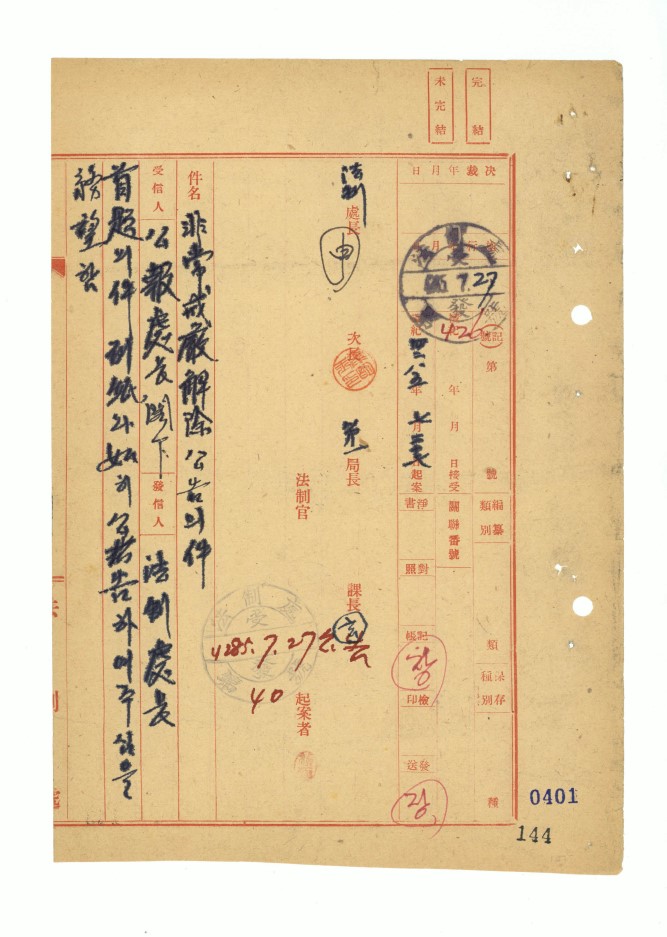 完結
未完結
決裁年月日
記號 第 號
426
編纂類別 類
保存種別 種
年月日接受
關聯番號
檀紀四二八五年七月二七日起案
淨書
對照
記帳
檢印
發送
法制處長
次長
第一局長
課長
法制官
起案者
4285.7.27
40
件名 非常戒嚴解除公告의件
受信人 公報處長 閣下
發信人 法制處長
首題의件 別紙와如히 公告하여주심을
務望함
0401
144